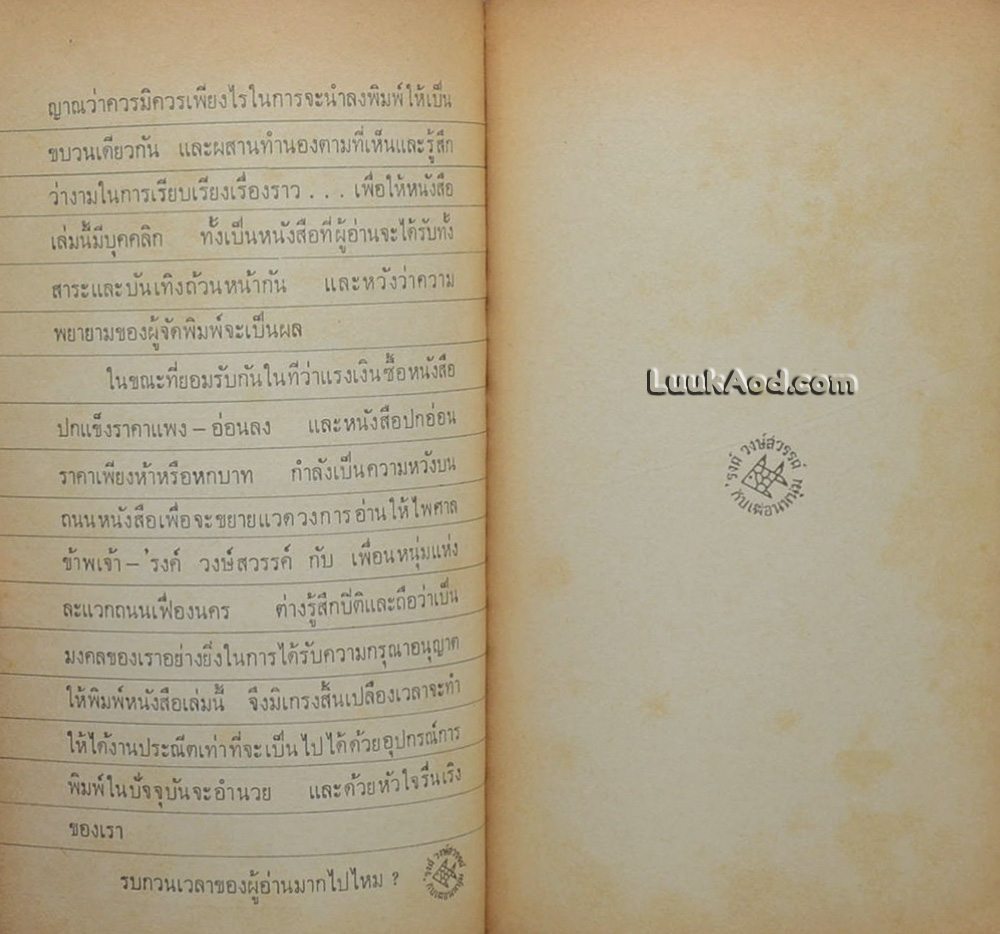 ญาณว่าควรมิควรเพียงไรในการจะนำลงพิมพ์ให้เป็น
ขบวนเดียวกัน และผสานทำนองตามที่เห็นและรู้สึก
ว่างามในการเรียบเรียงเรื่องราว . . . เพื่อให้หนังสือ
เล่มนี้มีบุคคลิก ทั้งเป็นหนังสือที่ผู้อ่านจะได้รับทั้ง
สาระและบันเทิงถ้วนหน้ากัน และหวังว่าความ
พยายามของผู้จัดพิมพ์จะเป็นผล
ในขณะที่ยอมรับกันในทีว่าแรงเงินซื้อหนังสือ
ปกแข็งราคาแพง – อ่อนลง และหนังสือปกอ่อน
ราคาเพียงห้าหรือหกบาท กำลังเป็นความหวังบน
ถนนหนังสือเพื่อจะขยายแวดวงการอ่านให้ไพศาล
ข้าพเจ้า – 'รงค์ วงษ์สวรรค์ กับ เพื่อนหนุ่มแห่ง
ละแวกถนนเฟื่องนคร ต่างรู้สึกปีติและถือว่าเป็น
มงคลของเราอย่างยิ่งในการได้รับความกรุณาอนุญาต
ให้พิมพ์หนังสือเล่มนี้ จึงมิเกรงสิ้นเปลืองเวลาจะทำ
ให้ได้งานประณีตเท่าที่จะเป็นไปได้ด้วยอุปกรณ์การ
พิมพ์ในปัจจุบันจะอำนวย และด้วยหัวใจรื่นเริง
ของเรา
รบกวนเวลาของผู้อ่านมากไปไหม ?
'รงค์ วงษ์สวรรค์
กับเพื่อนหนุ่ม
LuukAod.com
'รงค์ วงษ์สวรรค์
กับเพื่อนหนุ่ม